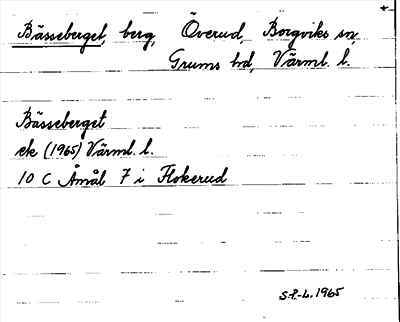 Bässeberget, berg, Överud, Borgviks sn,
Grums hd, Värml. l.
Bässeberget
ek (1965) Värml. l.
10 C Åmål 7 i Flokerud
S.P.-L. 1965